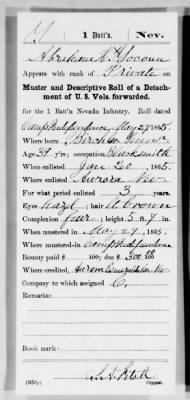 Y 1 Batt'n. Nev.
Abraham Yocum
Appears with rank of Private on
Muster and Descriptive Roll of a Detach-
ment of U. S. Vols. forwarded.
for the 1 Batt'n Nevada Infantry. Roll dated
Camp Independence May 27, 1865.
Where born
Age 34 y'rs; occupation Blacksmith
When enlisted Jan 20, 1865.
Where enlisted Aurora Nev
For what period enlisted 3 years.
Eyes hazel; hair lt. brown
Complexion fair; height 5 ft. 9 in.
When mustered in May 27, 1865.
Where mustered-in Camp Independence
Bounty paid $ 100; due $ 300 00/100
Where credited, Aurora Esmeralda Co. Nev
Company to which assigned C.
Remarks:
Book mark:
(656g) Copyist.